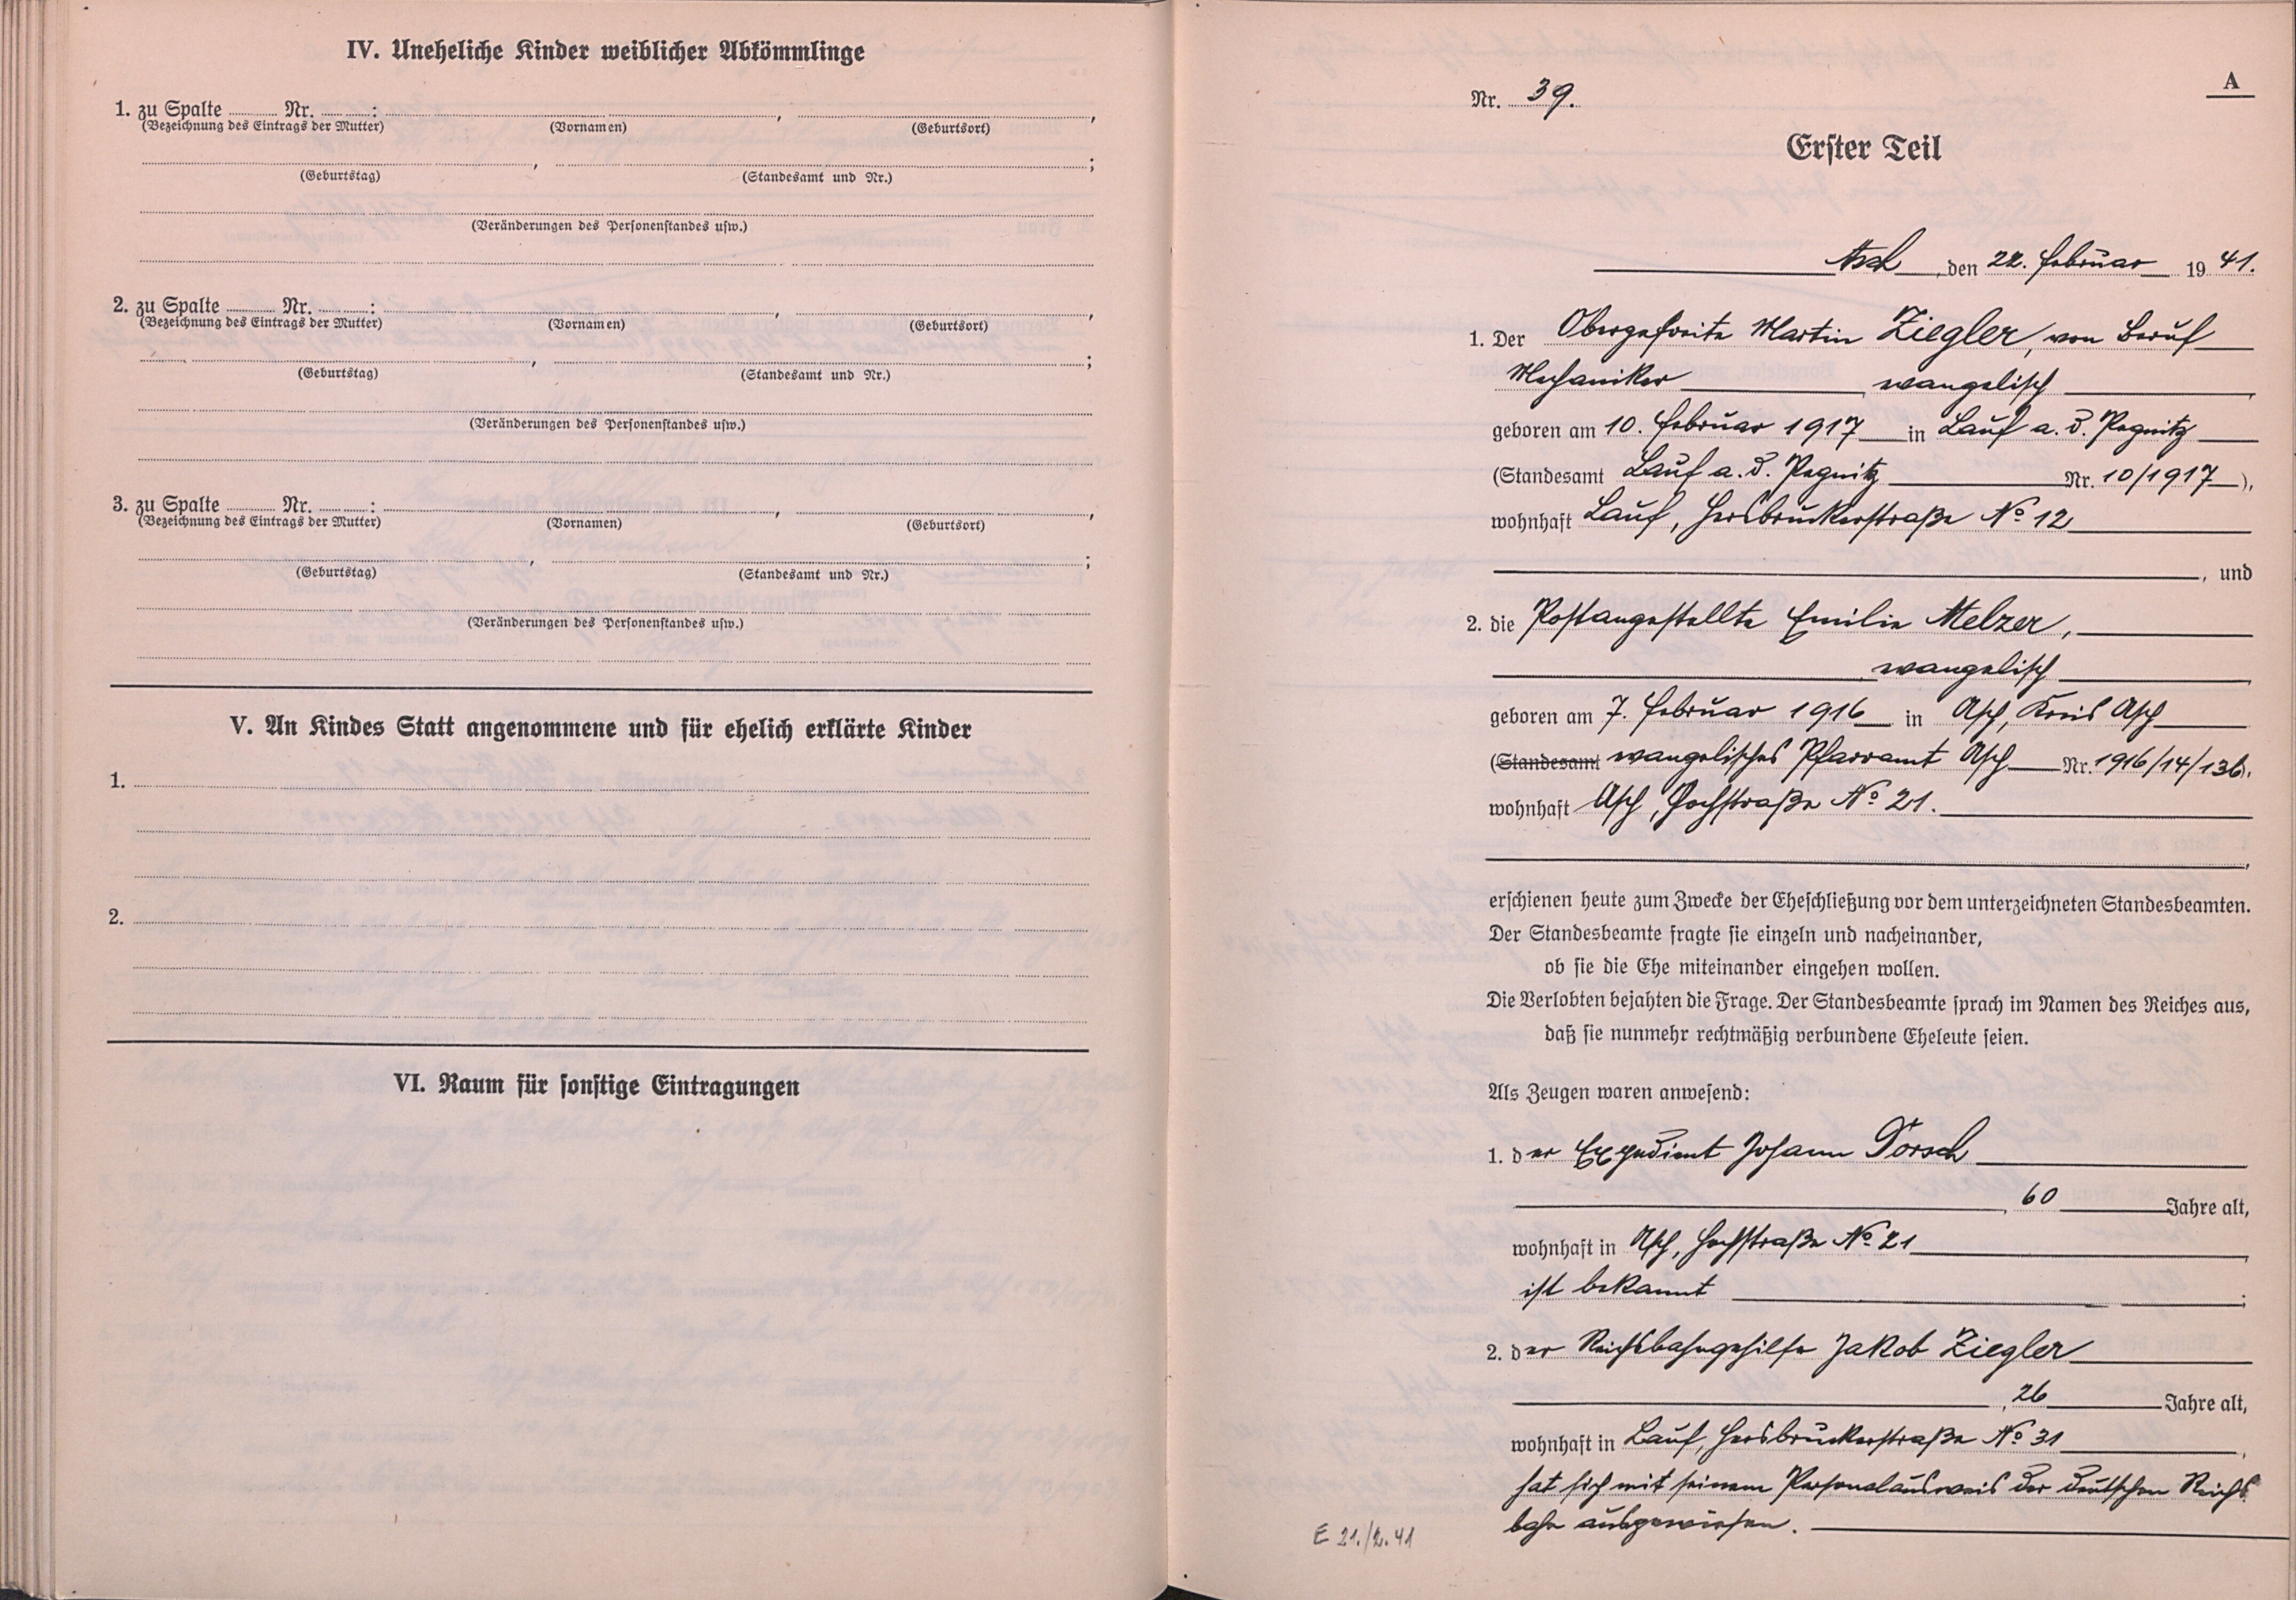 IV. Uneheliche Kinder weiblicher Abkömmlinge
1. zu Spalte ........ Nr. ........:
(Bezeichnung des Eintrags der Mutter) (Vornamen) (Geburtsort)
(Geburtstag) (Standesamt und Nr.)
(Veränderungen des Personenstandes usw.)
2. zu Spalte ........ Nr. ........:
(Bezeichnung des Eintrags der Mutter) (Vornamen) (Geburtsort)
(Geburtstag) (Standesamt und Nr.)
(Veränderungen des Personenstandes usw.)
3. zu Spalte ........ Nr. ........:
(Bezeichnung des Eintrags der Mutter) (Vornamen) (Geburtsort)
(Geburtstag) (Standesamt und Nr.)
(Veränderungen des Personenstandes usw.)
V. An Kindes Statt angenommene und für ehelich erklärte Kinder
1.
2.
VI. Raum für sonstige Eintragungen
A
Nr. 39.
Erster Teil
Asch, den 22. Februar 1941.
1. Der Obergefreite Martin Ziegler, von Beruf
Mechaniker, evangelisch
geboren am 10. Februar 1917 in Lauf a. d. Pegnitz
(Standesamt Lauf a. d. Pegnitz Nr. 10/1917),
wohnhaft Lauf, Hersbruckerstraße No 12
, und
2. die Postangestellte Emilie Melzer,
evangelisch
geboren am 7. Februar 1916 in Asch, Kreis Asch
(Standesamt evangelisches Pfarramt Asch Nr. 1916/14/136),
wohnhaft Asch, Hochstraße No 21.
erschienen heute zum Zwecke der Eheschließung vor dem unterzeichneten Standesbeamten.
Der Standesbeamte fragte sie einzeln und nacheinander,
ob sie die Ehe miteinander eingehen wollen.
Die Verlobten bejahten die Frage. Der Standesbeamte sprach im Namen des Reiches aus,
daß sie nunmehr rechtmäßig verbundene Eheleute seien.
Als Zeugen waren anwesend:
1. der Expedient Johann Dorsch
, 60 Jahre alt,
wohnhaft in Asch, Hochstraße No 21,
ist bekannt;
2. der Reichsbahngehilfe Jakob Ziegler
, 26 Jahre alt,
wohnhaft in Lauf, Hersbruckerstraße No 31,
hat sich mit seinem Personalausweis der deutschen Reichs
bahn ausgewiesen.
E 21./2.41